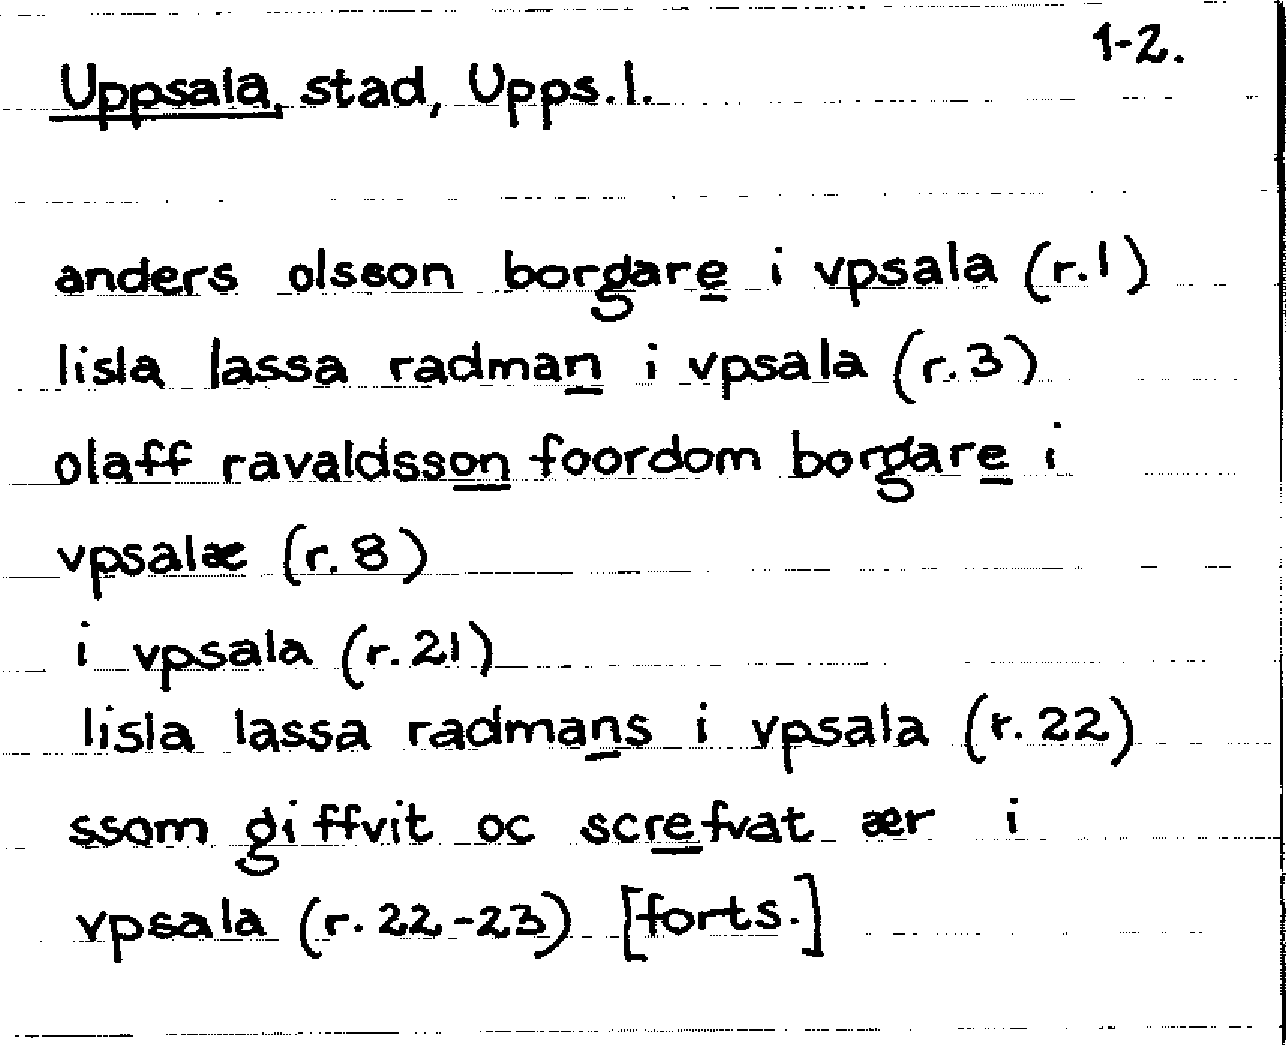 1-2.
Uppsala, stad, Upps.l.
anders olsson borgare i vpsala (r.1)
lisla lassa radman i vpsala (r.3)
olaff ravaldsson foordom borgare i
vpsalæ (r. 8)
i vpsala (r. 21)
lisla lassa radmans i vpsala (r. 22)
ssom giffvit oc screfvat ær i
vpsala (r. 22-23) [forts.]